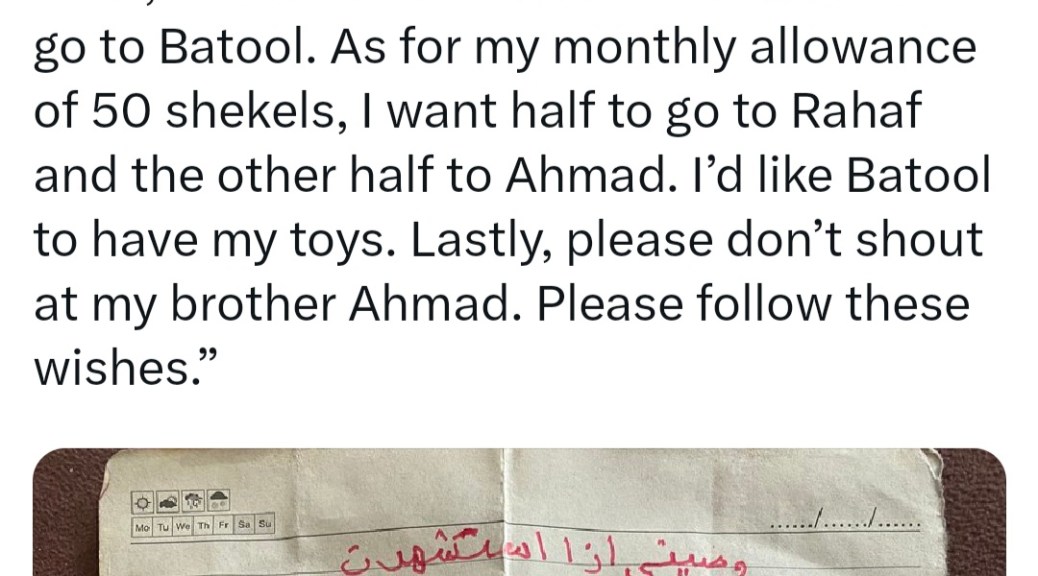 go to Batool. As for my monthly allowance
of 50 shekels, I want half to go to Rahaf
and the other half to Ahmad. I’d like Batool
to have my toys. Lastly, please don’t shout
at my brother Ahmad. Please follow these
wishes.”
Mo Tu We Th Fr Sa Su
....../....../......
وصيتي إذا استشهدت